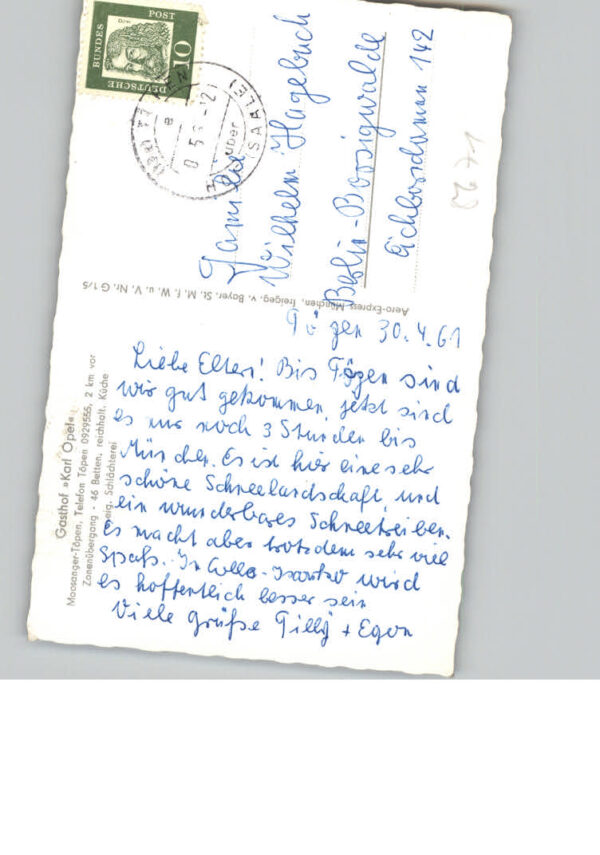 Gasthof »Karl Opel«
Moosanger-Töpen, Telefon Töpen 0929555, 2 km vor
Zonenübergang - 46 Betten, reichhalt. Küche
eig. Schlächterei
Aero-Express München, freigeg. v. Bayer. St. M. f. W. u. V. Nr. G 1/5
DEUTSCHE
BUNDES
POST
10
über
(SAALE)
Familie
Wilhelm Hagebuch
Berlin-Borsigwalde
Eichborndamm 142
Töpen 30.4.61
Liebe Eltern! Bis Töpen sind
wir gut gekommen, jetzt sind
es nur noch 3 Stunden bis
München. Es ist hier eine sehr
schöne Schneelandschaft, und
ein wunderbares Schneetreiben.
Es macht aber trotzdem sehr viel
Spaß. In wird
es hoffentlich besser sein
Viele Grüße Tilly + Egon